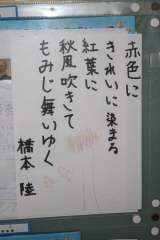 赤色に
きれいに染まる
紅葉に
秋風吹きて
もみじ舞いゆく
橋本 陸